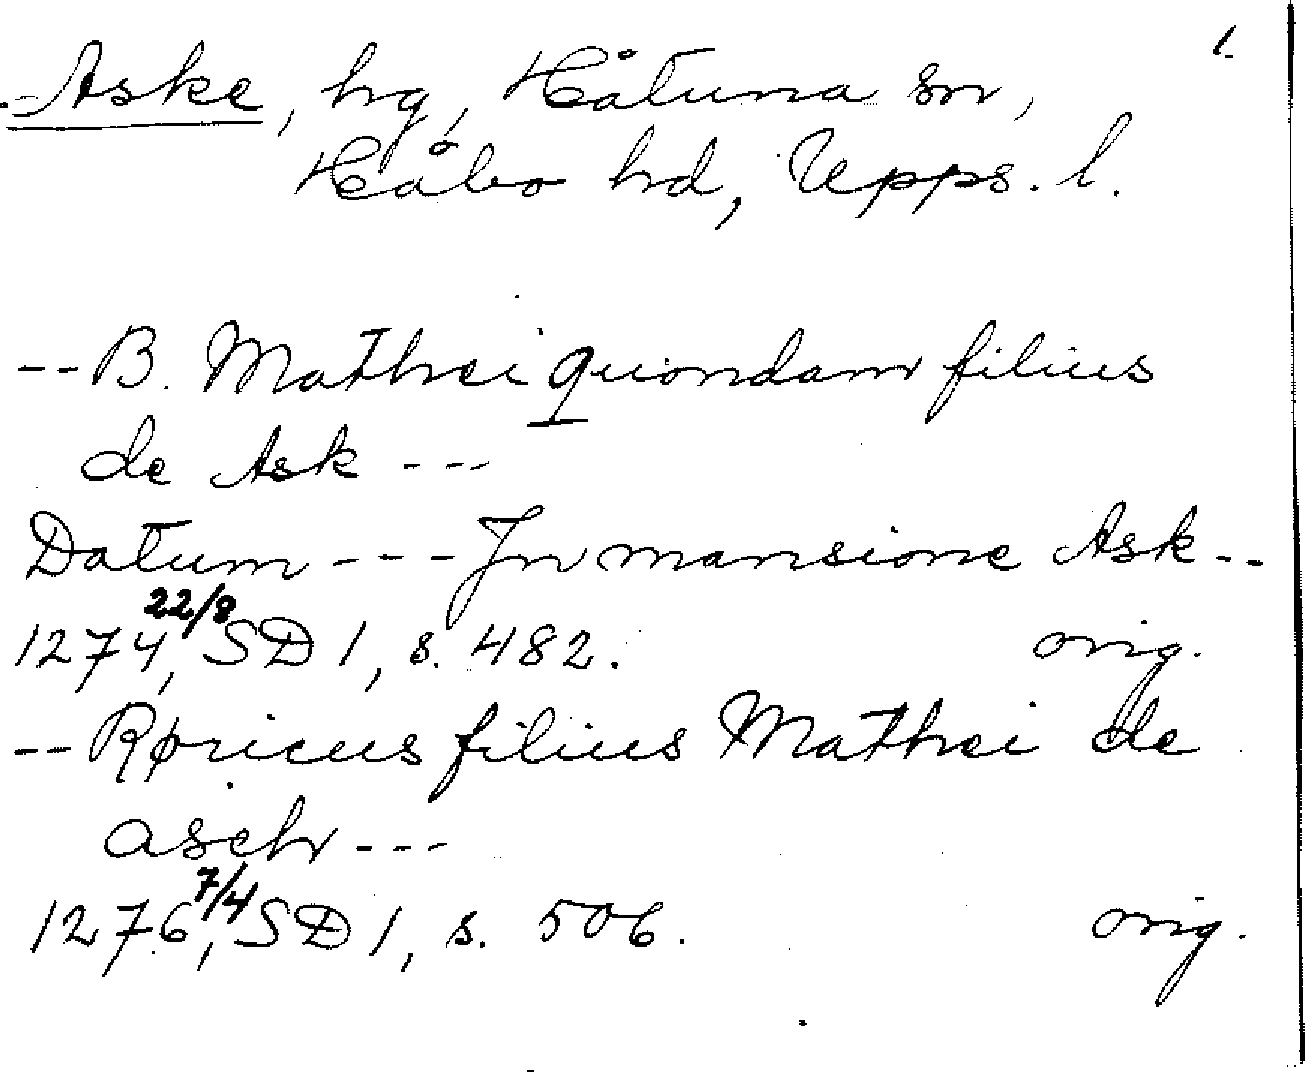 1.
Aske, hg, Håtuna sn,
Håbo hd, Upps. l.
-- B. Mathei quondam filius
de Ask ---
Datum --- Jn mansione Ask --
1274 22/8, SD 1, s. 482. orig.
-- Røricus filius Mathei de
asch ---
1276 7/4, SD 1, s. 506. orig.